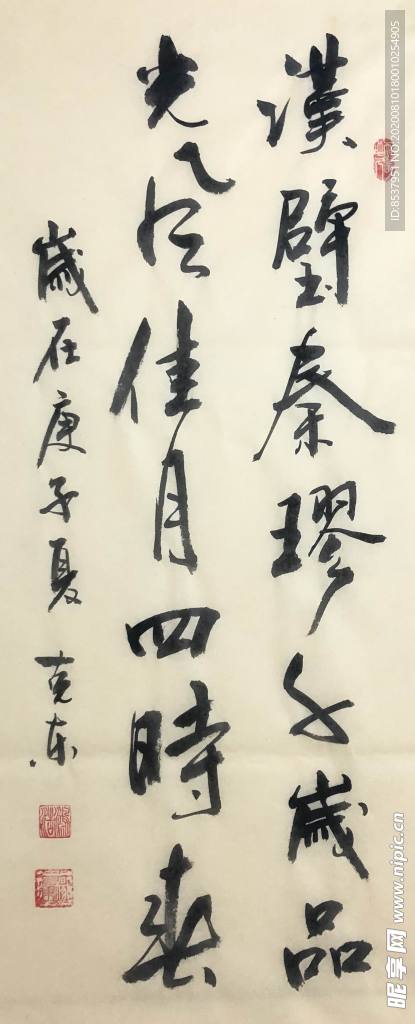 漢璧秦璆千歲品
光風佳月四時春
歲在庚子夏 克东
ID:8537951 NO:20200810180010254905
昵享网 www.nipic.cn